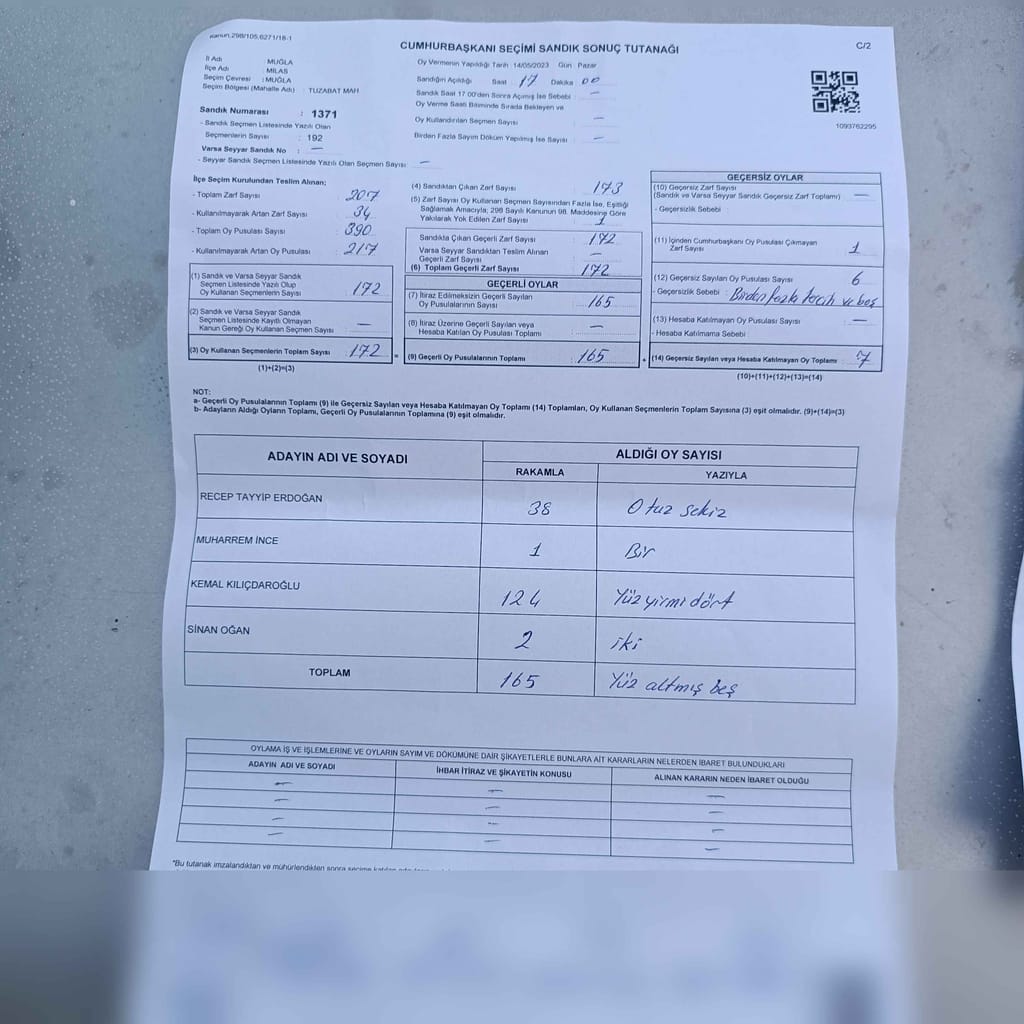 Kanun 298/105,6271/18-1
CUMHURBAŞKANI SEÇİMİ SANDIK SONUÇ TUTANAĞI
C/2
İl Adı : MUĞLA
İlçe Adı : MİLAS
Seçim Çevresi : MUĞLA
Seçim Bölgesi (Mahalle Adı) : TUZABAT MAH
Oy Vermenin Yapıldığı Tarih 14/05/2023 Gün Pazar
Sandığın Açıldığı Saat 17 Dakika 00
Sandık Saat 17:00'den Sonra Açılmış İse Sebebi : —
Oy Verme Saati Bitiminde Sırada Bekleyen ve
Oy Kullandırılan Seçmen Sayısı : —
Birden Fazla Sayım Döküm Yapılmış İse Sayısı : —
1093762295
Sandık Numarası : 1371
- Sandık Seçmen Listesinde Yazılı Olan
Seçmenlerin Sayısı : 192
Varsa Seyyar Sandık No : —
- Seyyar Sandık Seçmen Listesinde Yazılı Olan Seçmen Sayısı : —
İlçe Seçim Kurulundan Teslim Alınan;
- Toplam Zarf Sayısı : 207
- Kullanılmayarak Artan Zarf Sayısı : 34
- Toplam Oy Pusulası Sayısı : 390
- Kullanılmayarak Artan Oy Pusulası : 217
(1) Sandık ve Varsa Seyyar Sandık
Seçmen Listesinde Yazılı Olup
Oy Kullanan Seçmenlerin Sayısı : 172
(2) Sandık ve Varsa Seyyar Sandık
Seçmen Listesinde Kayıtlı Olmayan
Kanun Gereği Oy Kullanan Seçmen Sayısı : —
(3) Oy Kullanan Seçmenlerin Toplam Sayısı : 172
(1)+(2)=(3)
=
(4) Sandıktan Çıkan Zarf Sayısı : 173
(5) Zarf Sayısı Oy Kullanan Seçmen Sayısından Fazla İse, Eşitliği
Sağlamak Amacıyla; 298 Sayılı Kanunun 98. Maddesine Göre
Yakılarak Yok Edilen Zarf Sayısı : 1
Sandıkta Çıkan Geçerli Zarf Sayısı : 172
Varsa Seyyar Sandıktan Teslim Alınan
Geçerli Zarf Sayısı : —
(6) Toplam Geçerli Zarf Sayısı : 172
GEÇERLİ OYLAR
(7) İtiraz Edilmeksizin Geçerli Sayılan
Oy Pusulalarının Sayısı : 165
(8) İtiraz Üzerine Geçerli Sayılan veya
Hesaba Katılan Oy Pusulası Toplamı : —
(9) Geçerli Oy Pusulalarının Toplamı : 165
+
GEÇERSİZ OYLAR
(10) Geçersiz Zarf Sayısı
(Sandık ve Varsa Seyyar Sandık Geçersiz Zarf Toplamı) : —
- Geçersizlik Sebebi :
(11) İçinden Cumhurbaşkanı Oy Pusulası Çıkmayan
Zarf Sayısı : 1
(12) Geçersiz Sayılan Oy Pusulası Sayısı : 6
- Geçersizlik Sebebi : Birden fazla tercih ve boş
(13) Hesaba Katılmayan Oy Pusulası Sayısı : —
- Hesaba Katılmama Sebebi :
(14) Geçersiz Sayılan veya Hesaba Katılmayan Oy Toplamı : 7
(10)+(11)+(12)+(13)=(14)
NOT:
a- Geçerli Oy Pusulalarının Toplamı (9) ile Geçersiz Sayılan veya Hesaba Katılmayan Oy Toplamı (14) Toplamları, Oy Kullanan Seçmenlerin Toplam Sayısına (3) eşit olmalıdır. (9)+(14)=(3)
b- Adayların Aldığı Oyların Toplamı, Geçerli Oy Pusulalarının Toplamına (9) eşit olmalıdır.
ADAYIN ADI VE SOYADI ALDIĞI OY SAYISI
RAKAMLA YAZIYLA
RECEP TAYYİP ERDOĞAN 38 Otuz sekiz
MUHARREM İNCE 1 Bir
KEMAL KILIÇDAROĞLU 124 Yüz yirmi dört
SİNAN OĞAN 2 iki
TOPLAM 165 Yüz altmış beş
OYLAMA İŞ VE İŞLEMLERİNE VE OYLARIN SAYIM VE DÖKÜMÜNE DAİR ŞİKAYETLERLE BUNLARA AİT KARARLARIN NELERDEN İBARET BULUNDUKLARI
ADAYIN ADI VE SOYADI İHBAR İTİRAZ VE ŞİKAYETİN KONUSU ALINAN KARARIN NEDEN İBARET OLDUĞU
— — —
— — —
— — —
— — —
*Bu tutanak imzalandıktan ve mühürlendikten sonra seçime katılan